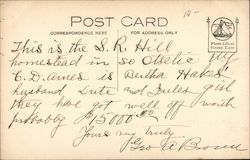 10-
POST CARD
CORRESPONDENCE HERE
FOR ADDRESS ONLY
Place Stamp Here
This is the S. R. Hill
homestead in so
C. D. Ames is Bertha Hakes
husband Lute and Jules girl
they have got well off worth
probably $15000.00
Yours very truly
Geo A